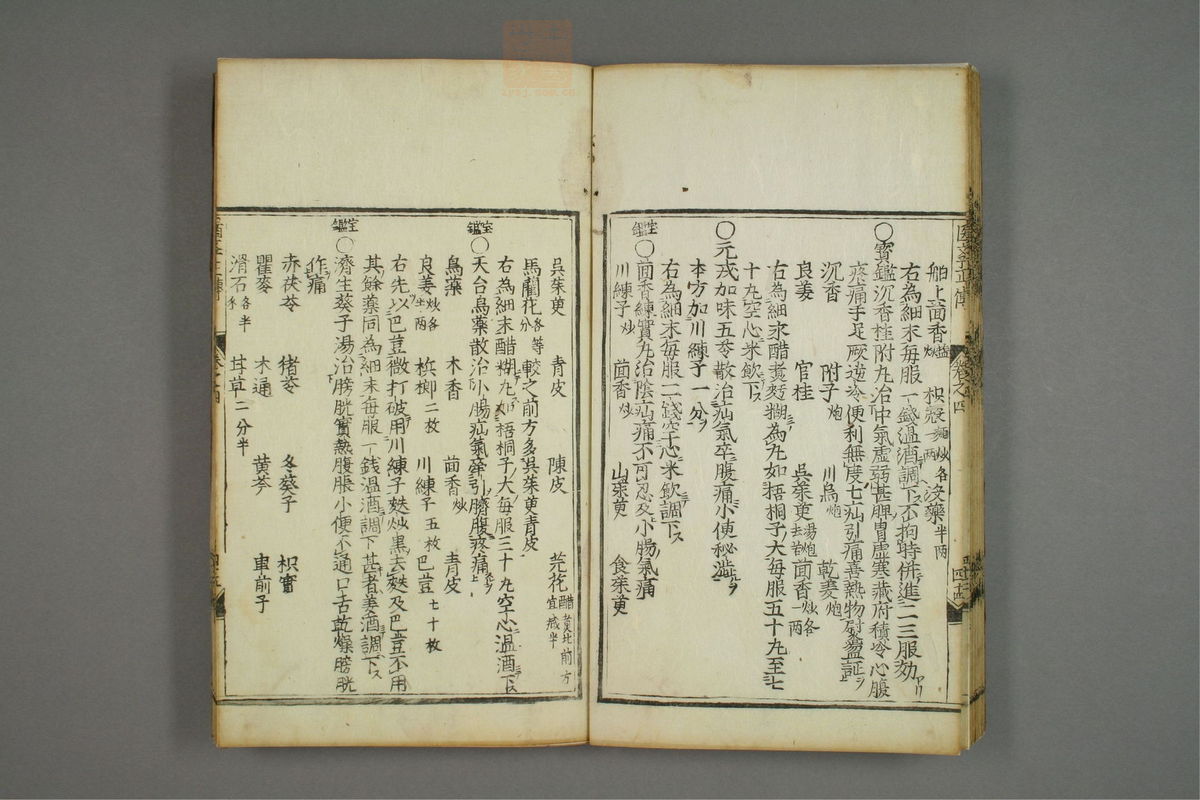 舶上茴香鹽炒 枳殼麺炒各一兩 没藥半兩
右為細末每服一錢温酒調下不拘時併進二三服効アリ
〇寳鑑沉香桂附丸治中氣虚弱甚脾胃虚寒藏府積冷心腹
疼痛手足厥逆冷便利無度七疝引痛喜熱物熨盪証ヲ
沉香 附子炮 川烏炮 乾姜炮
良姜 官桂 吳茱萸湯炮去苦 茴香炒各一兩
右為細末醋煑麪糊為丸如梧桐子大毎服五十丸至七
十丸空心米飲ニ下ス
〇元戎加味五苓散治疝氣卒腹痛小便秘澁ヲ
本方加川練子一分ヲ
右為細末每服二錢空心米飲調下ス
寳鑑〇茴香練實丸治陰疝痛不可忍及小腸氣痛
川練子炒 茴香炒 山茱萸 食茱萸
吳茱萸 青皮 陳皮 芫花醋煑比前方宜减半
馬藺花各等分 較之前方多吳茱萸青皮
右為細末醋糊丸如梧桐子大每服三十丸空心温酒下ス
寳鑑〇天台烏藥散治小腸疝氣牽引臍腹疼痛ヲ
烏藥 木香 茴香炒 青皮
良姜炒各半兩 梹榔二枚 川練子五枚 巴豆七十枚
右先以巴豆微打破用川練子麩炒黒去麩及巴豆不用
其餘藥同為細末每服一銭温酒調下甚者姜酒調下ス
寳鑑〇濟生葵子湯治膀胱實熱腹脹小便不通口舌乾燥膀胱
作痛
赤茯苓 猪苓 冬葵子 枳實
瞿麥 木通 黄芩 車前子
滑石各半錢 甘草二分半